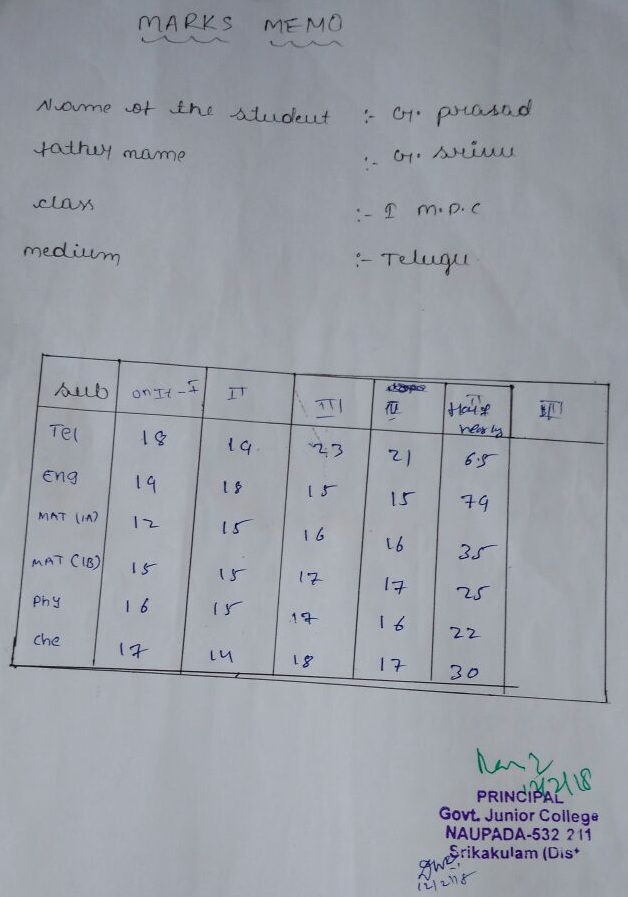 MARKS MEMO
Name of the student :- G. prasad
father name :- G. srinu
class :- I M.P.C
medium :- Telugu
Sub unit-I II III IV Half yearly
Tel 18 19 23 21 65
Eng 19 18 15 15 79
MAT (1A) 12 15 16 16 35
MAT (1B) 15 15 17 17 25
Phy 16 15 17 16 22
Che 17 14 18 17 30
12/2/18
PRINCIPAL
Govt. Junior College
NAUPADA-532 211
Srikakulam (Dist
12/2/18